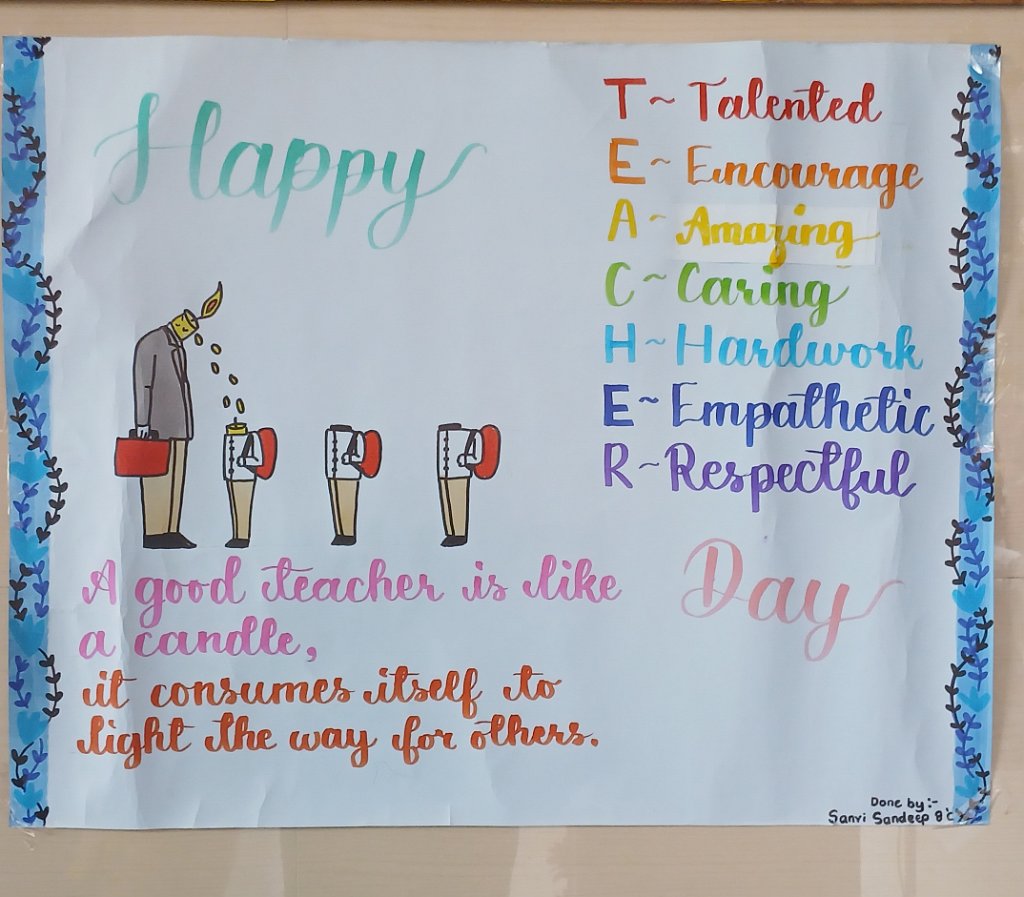 Happy
T ~ Talented
E ~ Encourage
A ~ Amazing
C ~ Caring
H ~ Hardwork
E ~ Empathetic
R ~ Respectful
Day
A good teacher is like
a candle,
it consumes itself to
light the way for others.
Done by:-
Sanvi Sandeep 8'c